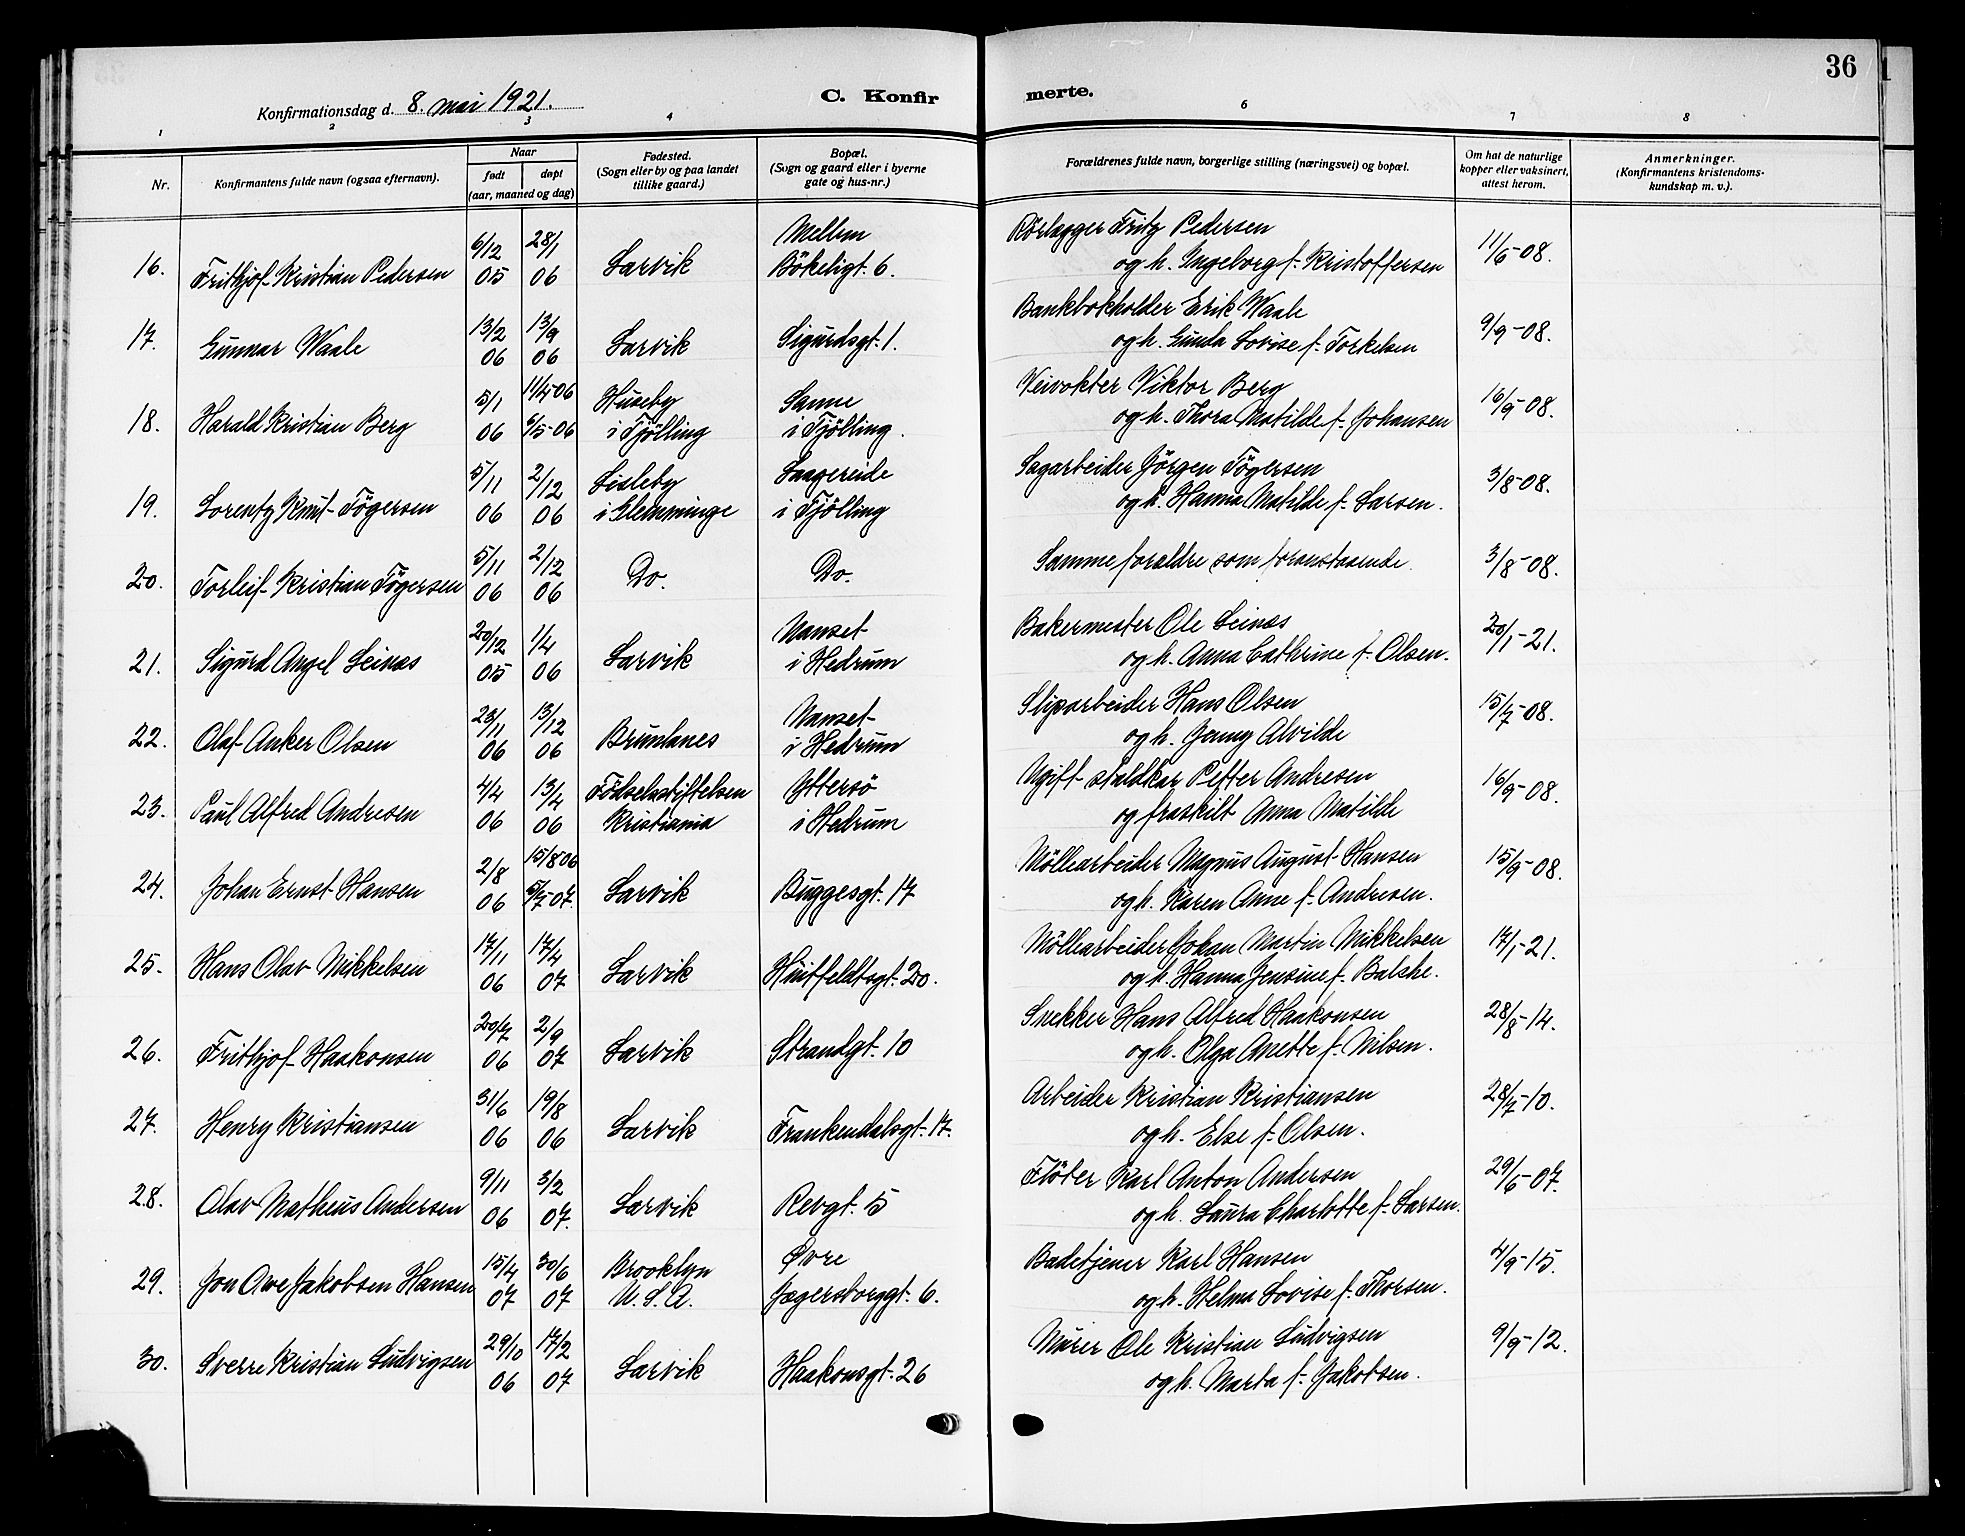 36
Konfirmationsdag d. 8. mai 1921.
C. Konfir
merte.
1 2 3 4 6 7 8
Nr.
Konfirmantens fulde navn (ogsaa efternavn).
Naar
født
døpt
(aar, maaned og dag)
Fødested.
(Sogn eller by og paa landet
tillike gaard.)
Bopæl.
(Sogn og gaard eller i byerne
gate og hus-nr.)
Forældrenes fulde navn, borgerlige stilling (næringsvei) og bopæl.
Om hat de naturlige
kopper eller vaksinert,
attest herom.
Anmerkninger.
(Konfirmantens kristendoms-
kundskap m. v.).
6/12 28/1 Mellem Rørlægger Fritz Pedersen
16. Frithjof Kristian Pedersen 05 06 Larvik Bökeligt. 6. og h. Ingeborg f. Kristoffersen 11/6-08.
13/2 13/9 Bankbokholder Erik Waale
17. Gunnar Waale 06 06 Larvik Sigurdsgt. 1. og h. Gunda Lovise f. Torkelsen 9/9-08.
5/1 11/4-06 Huseby Sanne Veivokter Viktor Berg
18. Harald Kristian Berg 06 6/5-06 i Tjölling i Tjölling. og h. Thora Matilde f. Johansen 16/9-08.
5/11 2/12 Lisleby Laagereide Sagarbeider Jörgen Tögersen
19. Lorentz Knut Tögersen 06 06 i Glemminge i Tjölling og h. Hanna Matilde f. Larsen. 3/8-08.
5/11 2/12
20. Torleif Kristian Tögersen 06 06 Do. Do. Samme foraldre som foranstaaende. 3/8-08.
20/12 1/4 Nanset Bakermester Ole Leinæs
21. Sigurd Angel Leinæs 05 06 Larvik i Hedrum og h. Anna Cathrine f. Olsen. 20/1-21.
23/11 13/12 Nanset Sliparbeider Hans Olsen
22. Olaf Anker Olsen 06 06 Brunlanes i Hedrum og h. Jenny Alvilde 15/7-08.
4/4 13/4 Födselsstiftelsen Yttersö Ugift staldkar Petter Andresen
23. Paul Alfred Andresen 06 06 Kristiania i Hedrum og fraskilt Anna Matilde 16/9-08.
2/8 15/8-06 Möllearbeider Magnus August Hansen
24. Johan Ernst Hansen 06 5/7-07. Larvik Buggesgt. 17 og h. Karen Anne f. Andresen. 15/9-08.
17/11 17/4 Möllearbeider Johan Martin Mikkelsen
25. Hans Olav Mikkelsen 06 07 Larvik Huitfeldtsgt. 20. og h. Hanna Jensine f. Balske. 17/1-21.
20/7 2/9 Snekker Hans Alfred Haakonsen
26. Frithjof Haakonsen 06 07 Larvik Strandgt. 10 og h. Olga Anette f. Nilsen. 28/8-14.
31/6 19/8 Arbeider Kristian Kristiansen
27. Henry Kristiansen 06 06 Larvik Frankendalsgt. 17. og h. Else f. Olsen. 28/7-10.
9/11 3/2 Flöter Karl Anton Andersen
28. Olav Matheus Andersen 06 07. Larvik Revgt. 5 og h. Laura Charlotte f. Larsen. 29/6-07.
15/4 30/6 Brooklyn Øvre Badetjener Karl Hansen
29. Jon Owe Jakobsen Hansen 07 07 U.S.A. Jægersborggt. 6. og h. Helma Lovise f. Thorsen. 4/9-15.
29/10 17/2 Murer Ole Kristian Ludvigsen
30. Sverre Kristian Ludvigsen 06 07 Larvik Haakonsgt. 26 og h. Marta f. Jakobsen. 9/9-12.